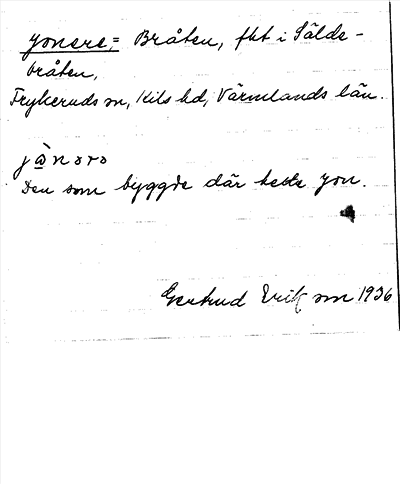 yonere,= Bråten, fht i Sälde-
bråten,
Frykeruds sn, Kils hd, Värmlands län.
jànoro
Den som byggde där hette yon.
Gertrud Erik son 1936